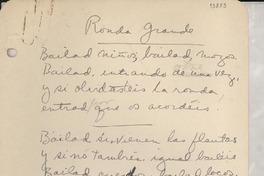 Ronda Grande
Bailad niños, bailad, mozos.
Bailad, entrando de una vez,
y si olvidasteis la ronda
entrad que os acordéis.
Bailad si vienen las flautas
y si no también igual bailéis
Bailad locos,